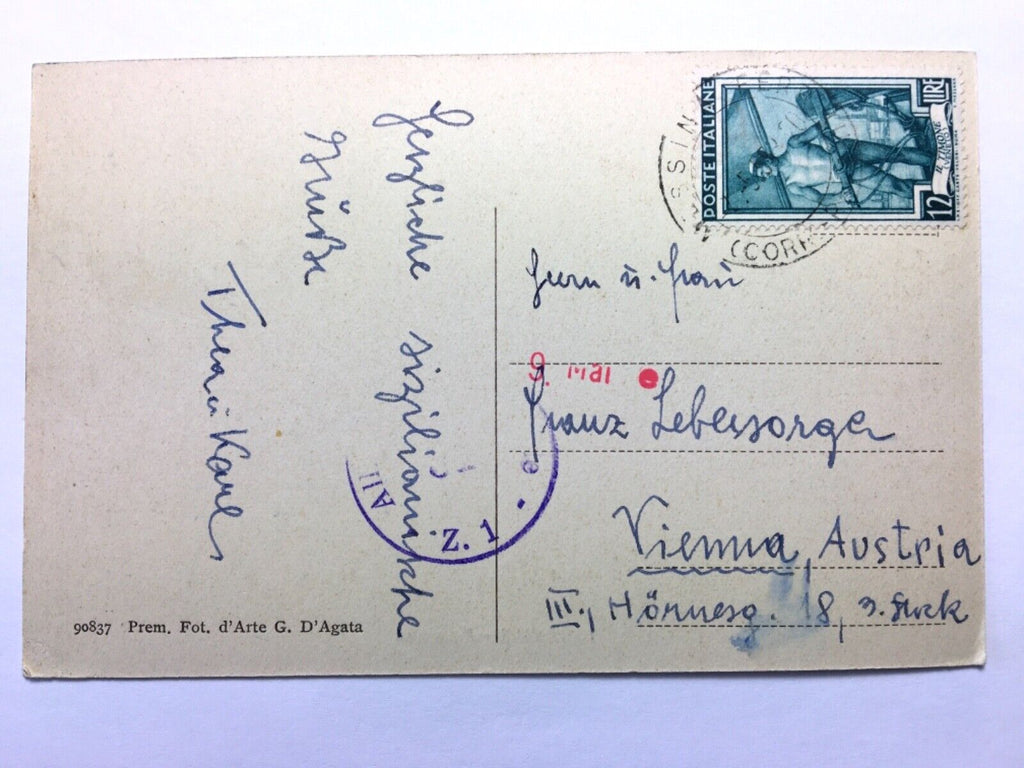 Herzliche sizilianische
Grüße
Thea u. Karl
90837 Prem. Fot. d'Arte G. D'Agata
POSTE ITALIANE
LIRE
12
IL TIMONE
(CORR
Herrn u. Frau
9. Mai
Franz Lebersorger
Vienna, Austria
III., Hörnesg. 18, 3. Stock
All
Z. 1